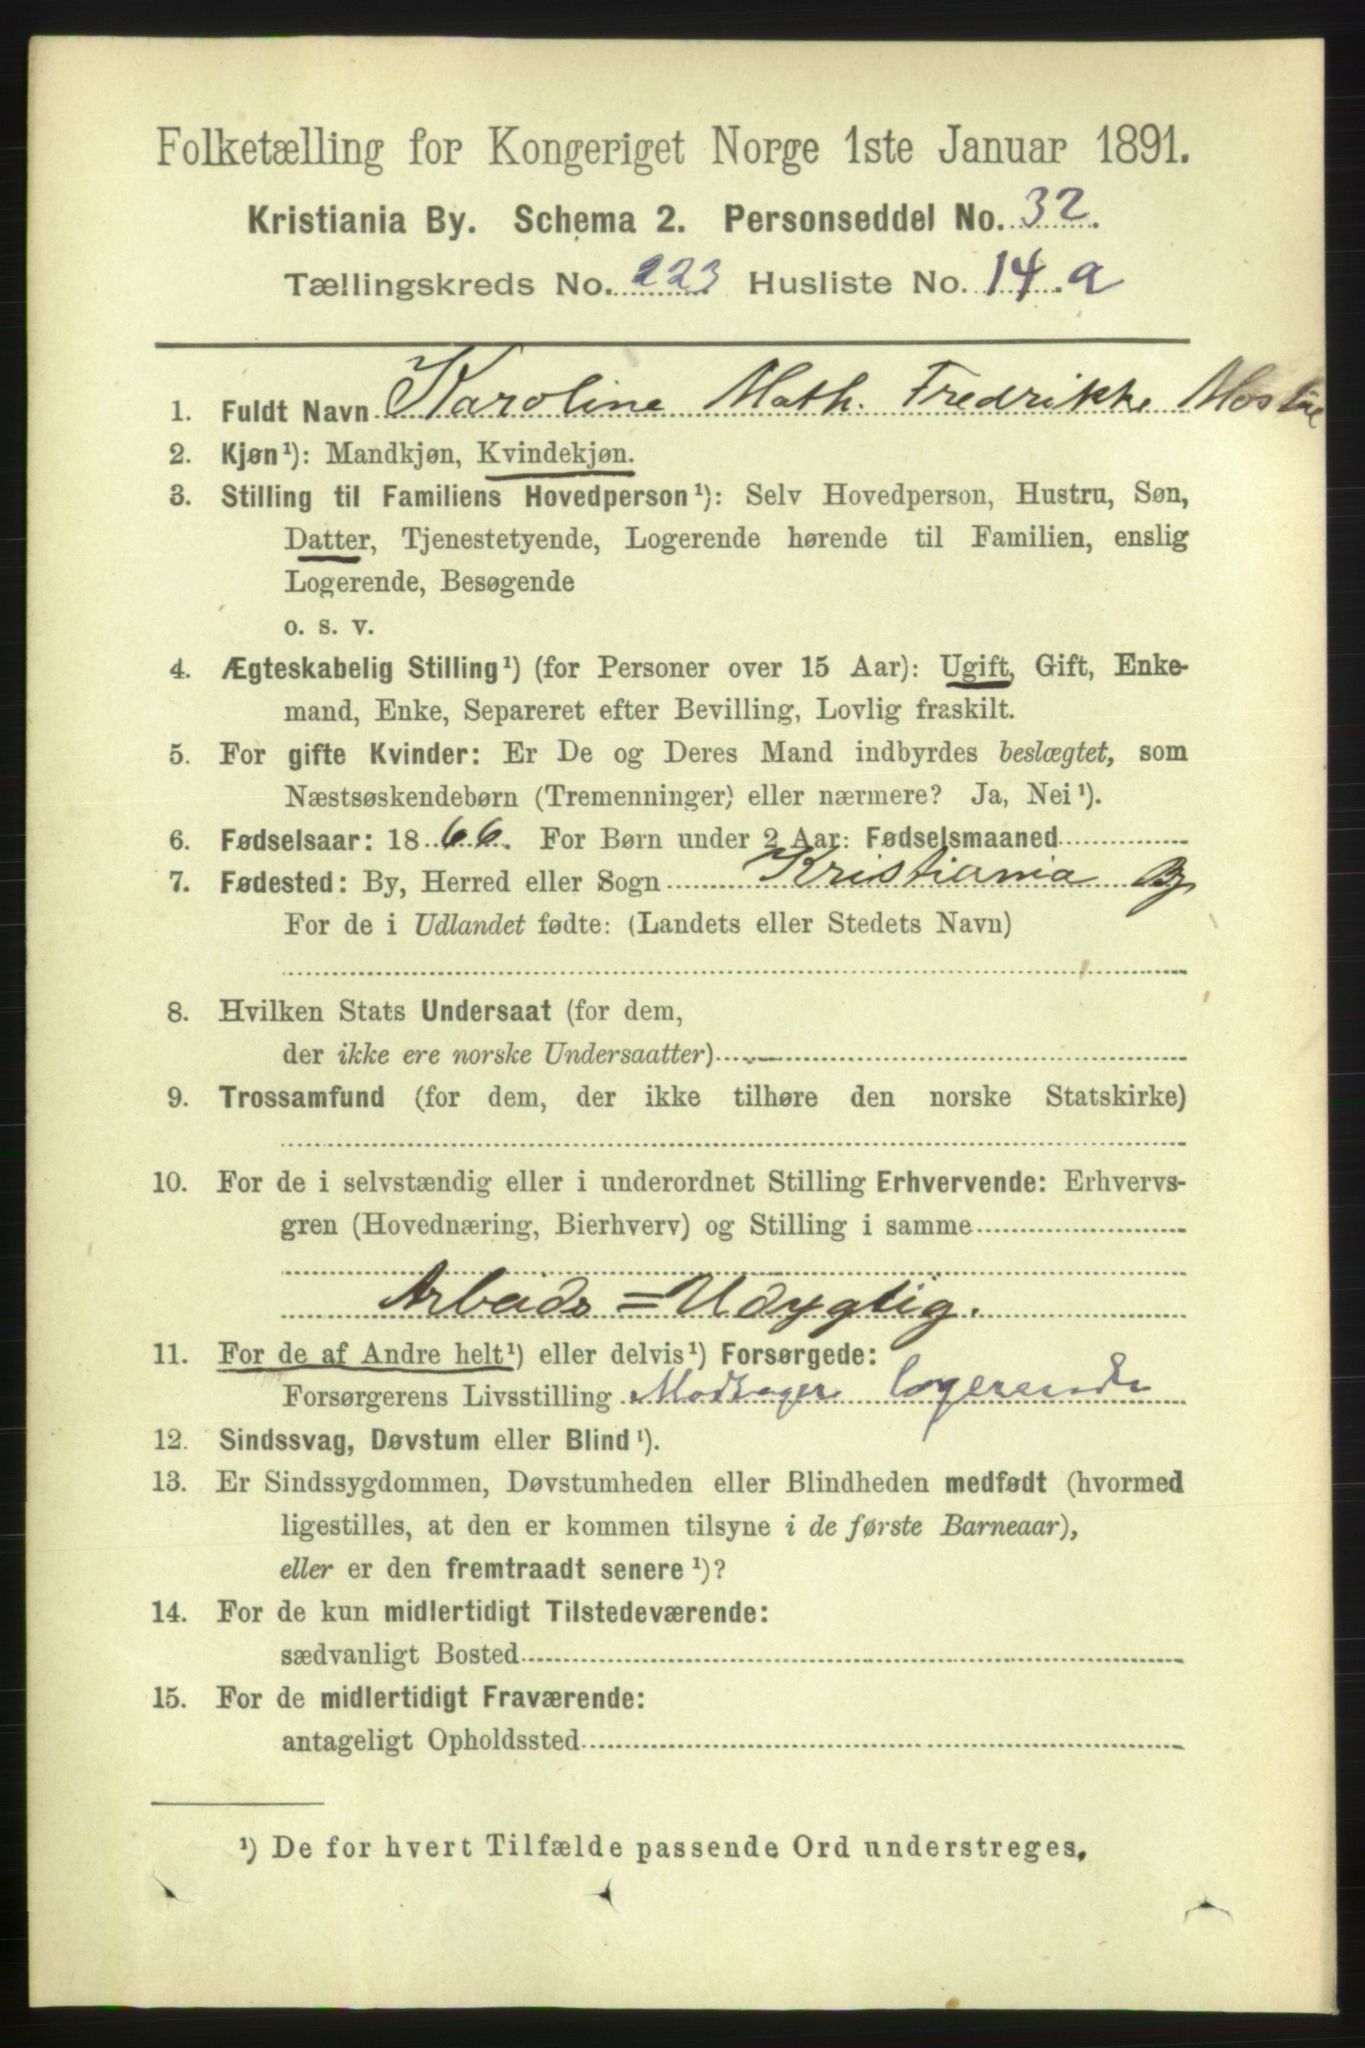 Folketælling for Kongeriget Norge 1ste Januar 1891.
Kristiania By. Schema 2. Personseddel No. 32.
Tællingskreds No. 223 Husliste No. 14.a
1. Fuldt Navn Karoline Math. Fredrikke
2. Kjøn¹): Mandkjøn, Kvindekjøn.
3. Stilling til Familiens Hovedperson¹): Selv Hovedperson, Hustru, Søn,
Datter, Tjenestetyende, Logerende hørende til Familien, enslig
Logerende, Besøgende
o. s. v.
4. Ægteskabelig Stilling¹) (for Personer over 15 Aar): Ugift, Gift, Enke-
mand, Enke, Separeret efter Bevilling, Lovlig fraskilt.
5. For gifte Kvinder: Er De og Deres Mand indbyrdes beslægtet, som
Næstsøskendebørn (Tremenninger) eller nærmere? Ja, Nei¹).
6. Fødselsaar: 1866. For Børn under 2 Aar: Fødselsmaaned
7. Fødested: By, Herred eller Sogn Kristiania By
For de i Udlandet fødte: (Landets eller Stedets Navn)
8. Hvilken Stats Undersaat (for dem,
der ikke ere norske Undersaatter)
9. Trossamfund (for dem, der ikke tilhøre den norske Statskirke)
10. For de i selvstændig eller i underordnet Stilling Erhvervende: Erhvervs-
gren (Hovednæring, Bierhverv) og Stilling i samme
Arbeids=Udygtig.
11. For de af Andre helt¹) eller delvis¹) Forsørgede:
Forsørgerens Livsstilling Modtager logerende
12. Sindssvag, Døvstum eller Blind¹).
13. Er Sindssygdommen, Døvstumheden eller Blindheden medfødt (hvormed
ligestilles, at den er kommen tilsyne i de første Barneaar),
eller er den fremtraadt senere¹)?
14. For de kun midlertidigt Tilstedeværende:
sædvanligt Bosted
15. For de midlertidigt Fraværende:
antageligt Opholdssted
¹) De for hvert Tilfælde passende Ord understreges.